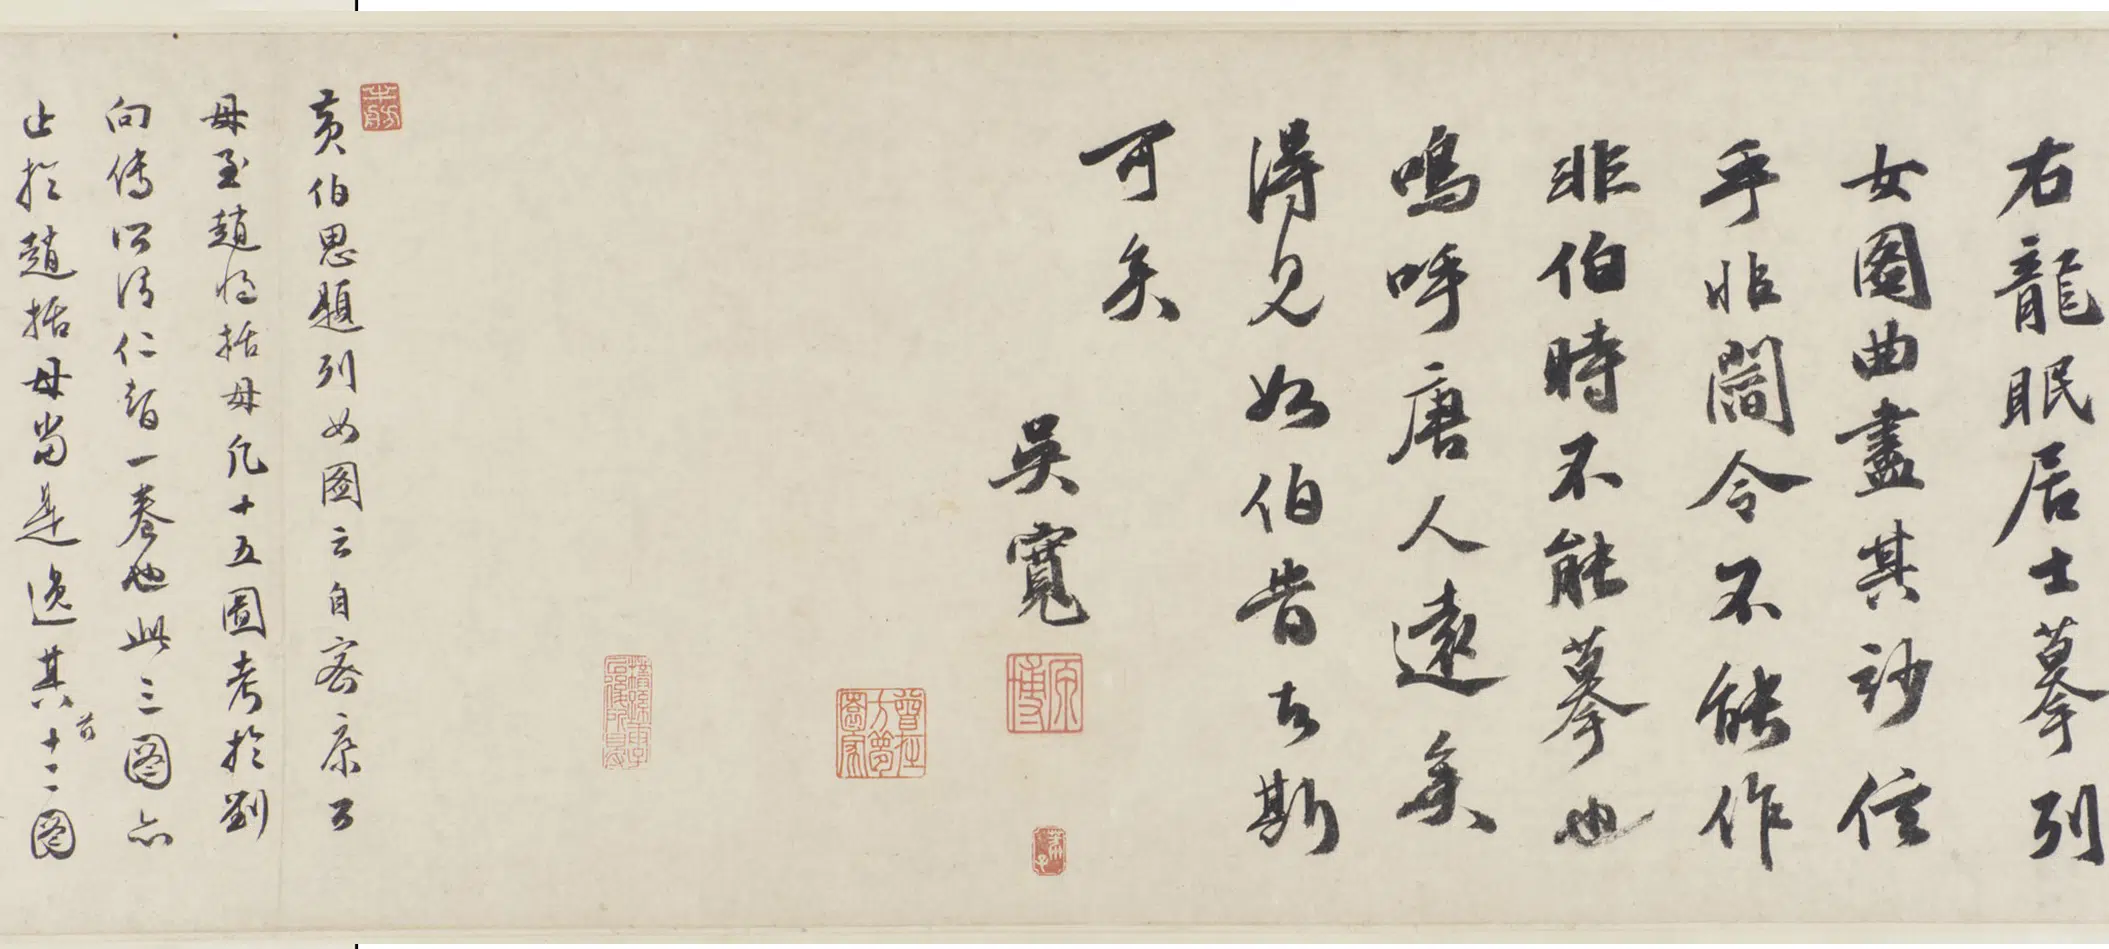 右龍眠居士摹列
女圖曲盡其妙信
乎非閻令不能作
非伯時不能摹也
鳴呼唐人遠矣
得見如伯昔者斯
可矣
吳寬
原博
黃伯思題列女圖云自密康公
母至趙將括母凡十五圖考於劉
向傳所謂仁智一卷也此三圖亦
止於趙括母當是逸其前十二圖